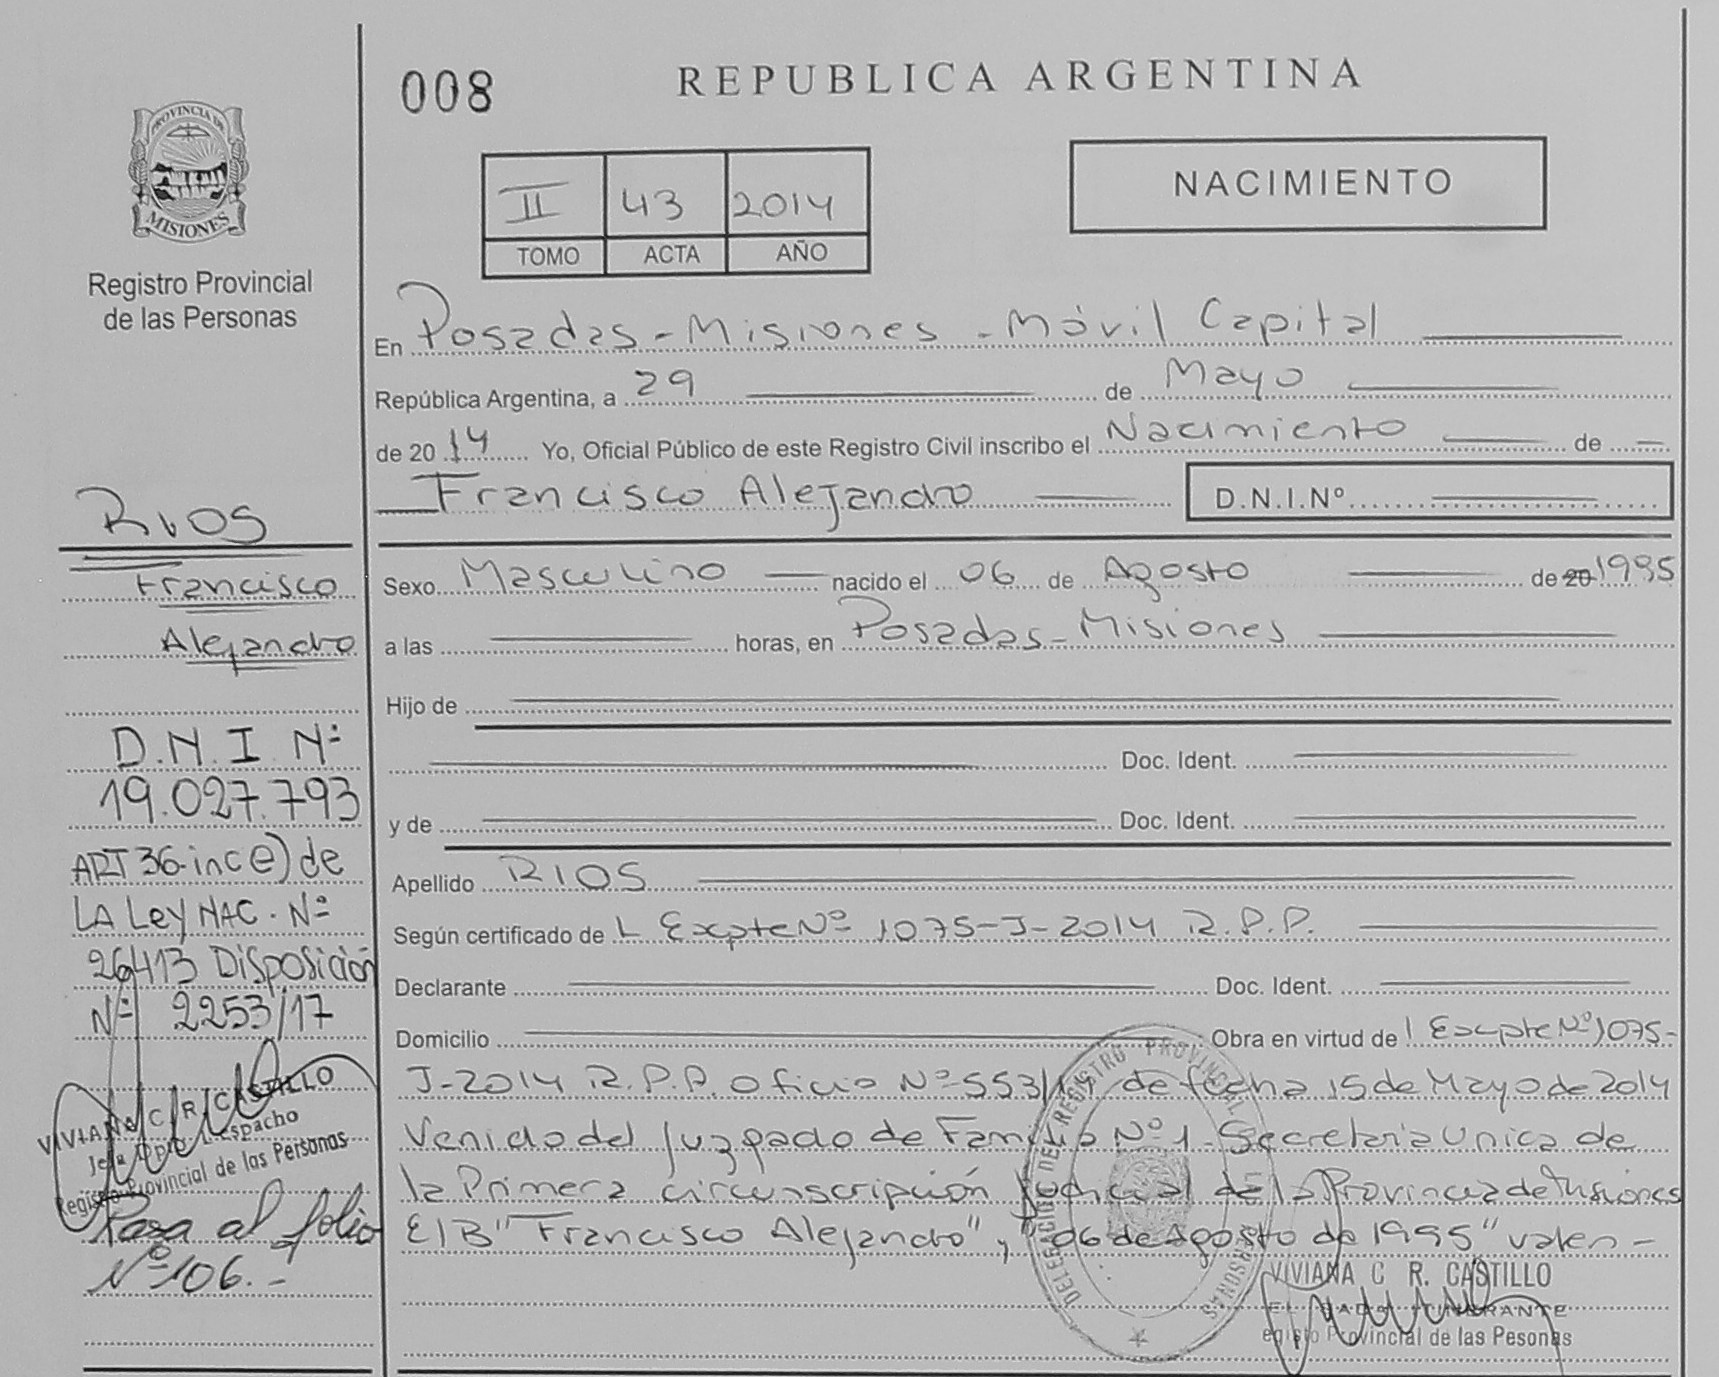 008
REPUBLICA ARGENTINA
PROVINCIA DE
MISIONES
Registro Provincial
de las Personas
II 43 2014
TOMO ACTA AÑO
NACIMIENTO
En Posadas - Misiones - Móvil Capital
República Argentina, a 29 de Mayo
de 2014 Yo, Oficial Público de este Registro Civil inscribo el Nacimiento de
Francisco Alejandro D.N.I.Nº
Sexo Masculino nacido el 06 de Agosto de 20 1995
a las horas, en Posadas - Misiones
Hijo de
Doc. Ident.
y de Doc. Ident.
Apellido RIOS
Según certificado de L Expte Nº 1075-J-2014 R.P.P.
Declarante Doc. Ident.
Domicilio Obra en virtud de Expte Nº 1075-
J-2014 R.P.P. Oficio Nº 553/14 de fecha 15 de Mayo de 2014
Venido del Juzgado de Familia Nº 1 - Secretaria Unica de
la Primera circunscripción Judicial de la Provincia de Misiones
E/B "Francisco Alejandro", y "06 de Agosto de 1995" valen -
VIVIANA C R. CASTILLO
Registro Provincial de las Pesonas
DELEGACION DEL REGISTRO PROVINCIAL DE LAS PERSONAS
RIOS
Francisco
Alejandro
D.N.I Nº
19.027.793
ART 36 inc e) de
LA Ley NAC. Nº
26413 Disposición
Nº 2253/17
VIVIANA C R CASTILLO
Jefa Dpto. Despacho
Registro Provincial de las Personas
Pasa al folio
Nº 106.-